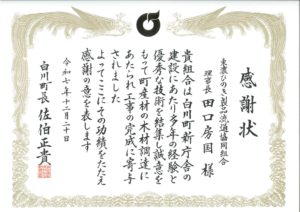 感謝状
東濃ひのき製品流通協同組合
理事長 田口房国 様
貴組合は白川町新庁舎の
建設にあたり多年の経験と
優秀な技術を結集し誠意を
もって町産材の木材調達に
あたられ工事の完成に寄与
されました
よってここにその功績をたたえ
感謝の意を表します
令和七年十二月二十日
白川町長 佐伯正貴